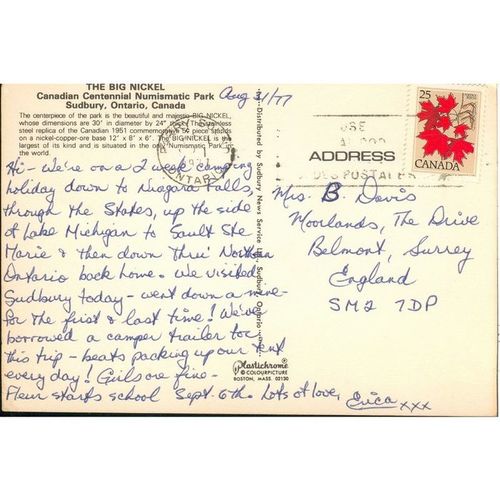 THE BIG NICKEL
Canadian Centennial Numismatic Park
Sudbury, Ontario, Canada
The centerpiece of the park is the beautiful and majestic BIG NICKEL,
whose dimensions are 30' in diameter by 24" thick. The stainless
steel replica of the Canadian 1951 commemorative 5¢ piece stands
on a nickel-copper-ore base 12' x 8' x 6'. The BIG NICKEL is the
largest of its kind and is situated in the only Numismatic Park in
the world.
Aug 31/77
Hi - We're on a 2 week camping
holiday down to Niagara Falls,
through the States, up the side
of Lake Michigan to Sault Ste
Marie & then down Thru' Northern
Ontario back home. We visited
Sudbury today - went down a mine -
for the first & last time! We've
borrowed a camper trailer for
this trip - beats packing up our tent
every day! Girls are fine -
Fleur starts school Sept. 6th. Lots of love,
Erica xxx
Distributed by Sudbury News Service Sudbury, Ontario
Plastichrome
COLOURPICTURE
BOSTON, MASS. 02130
25
CANADA
1977
ONTARIO
USE
ADDRESS
POSTAL
Mrs. B Davis
Moorlands, The Drive
Belmont, Surrey
England
SM2 7DP